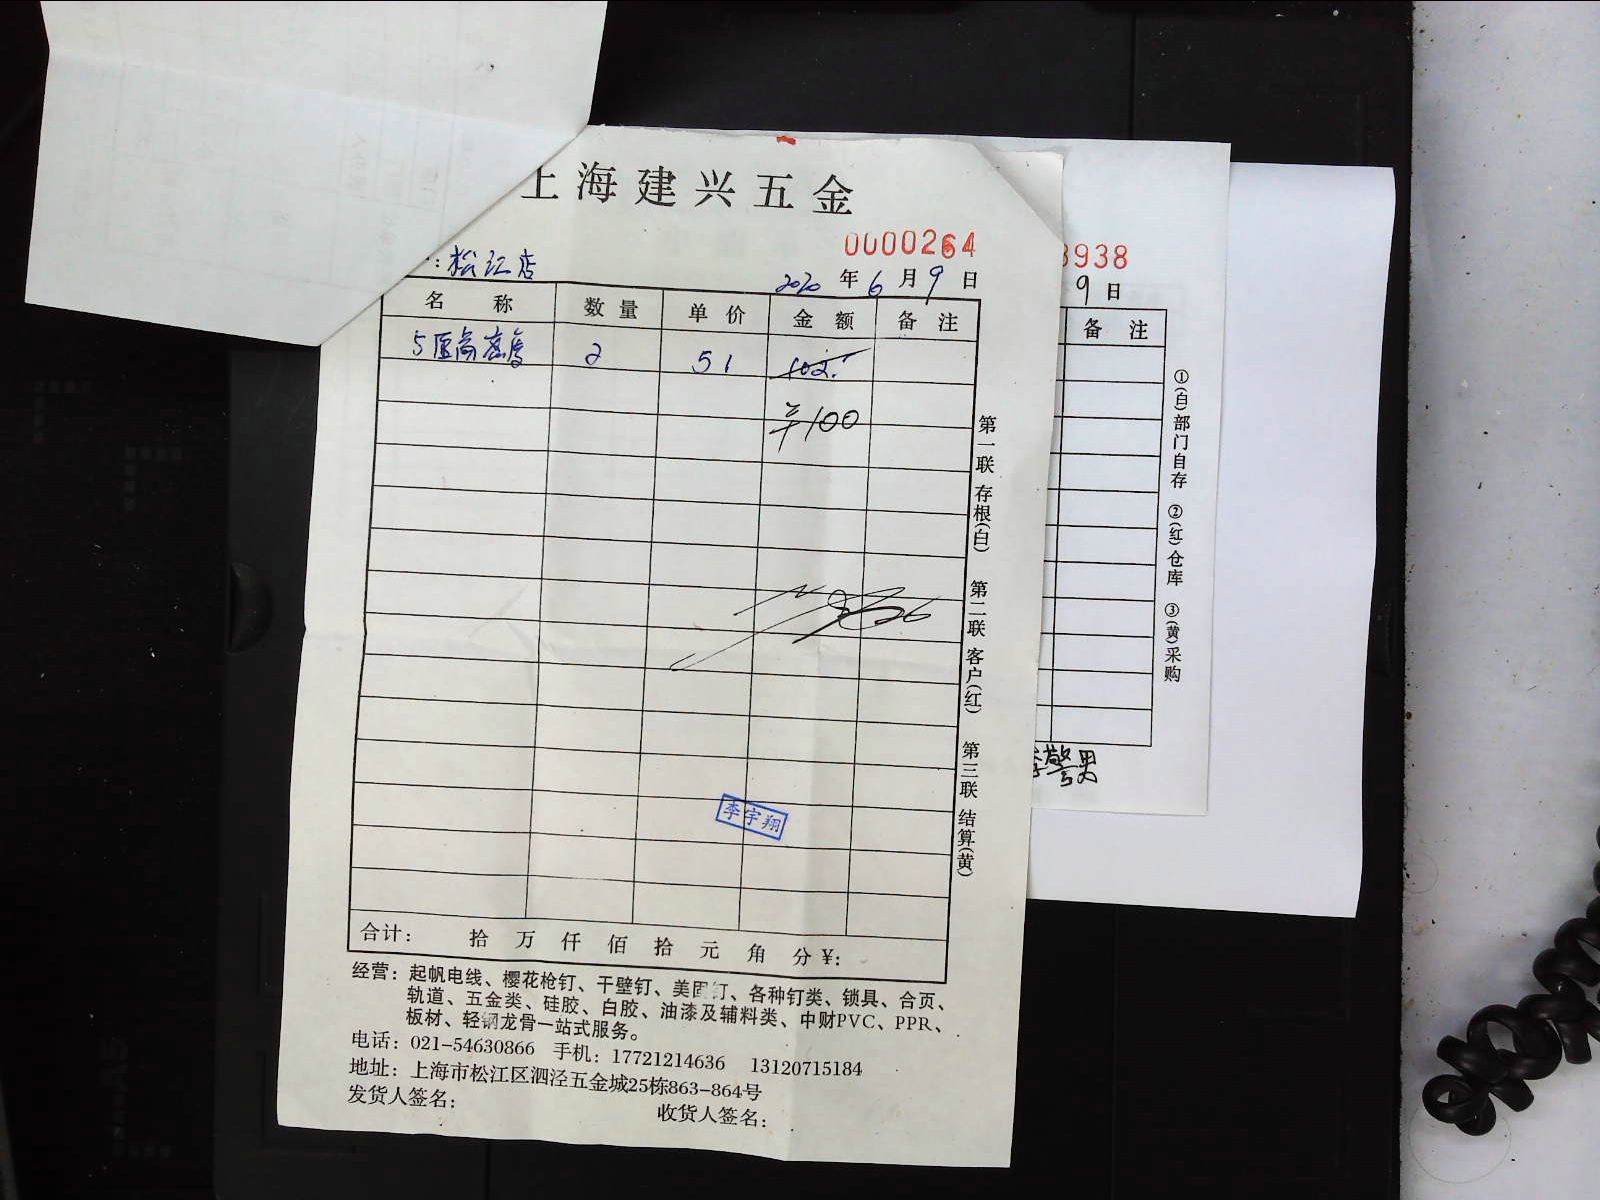 上海建兴五金
0000264
：松江店 2020年6月9日
名称 数量 单价 金额 备注
5厘高密度 2 51 102.
¥100
第一联 存根(白) 第二联 客户(红) 第三联 结算(黄)
李宇翔
合计： 拾 万 仟 佰 拾 元 角 分¥:
经营：起帆电线、樱花枪钉、干壁钉、美固钉、各种钉类、锁具、合页、
轨道、五金类、硅胶、白胶、油漆及辅料类、中财PVC、PPR、
板材、轻钢龙骨一站式服务。
电话：021-54630866 手机：17721214636 13120715184
地址：上海市松江区泗泾五金城25栋863-864号
发货人签名： 收货人签名：
3938
9日
备注
①(白)部门自存 ②(红)仓库 ③(黄)采购